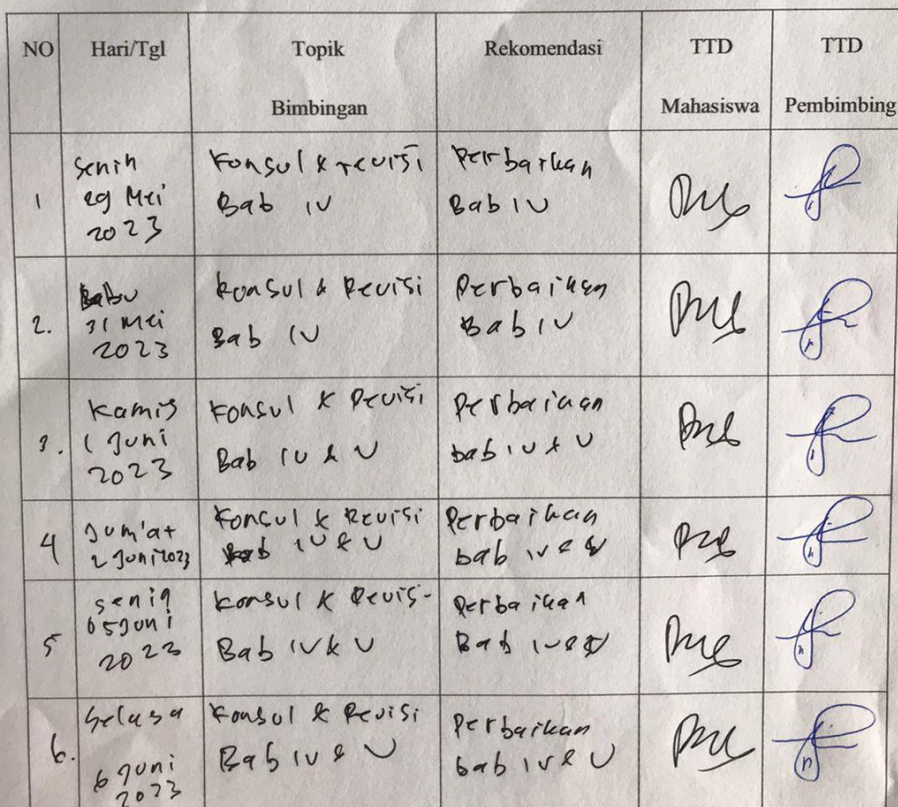 NO Hari/Tgl Topik Bimbingan Rekomendasi TTD Mahasiswa TTD Pembimbing
1 Senin 29 Mei 2023 Konsul & revisi Bab IV Perbaikan Bab IV
2. Rabu 31 Mei 2023 Konsul & Revisi Bab IV Perbaikan Bab IV
3. Kamis 1 Juni 2023 Konsul & Revisi Bab IV & V Perbaikan bab IV & V
4 Jum'at 2 Juni 2023 Konsul & Revisi Bab IV & V Perbaikan bab IV & V
5 Senin 05 Juni 2023 Konsul & Revisi Bab IV & V Perbaikan Bab IV & V
6. Selasa 6 Juni 2023 Konsul & Revisi Bab IV & V Perbaikan bab IV & V